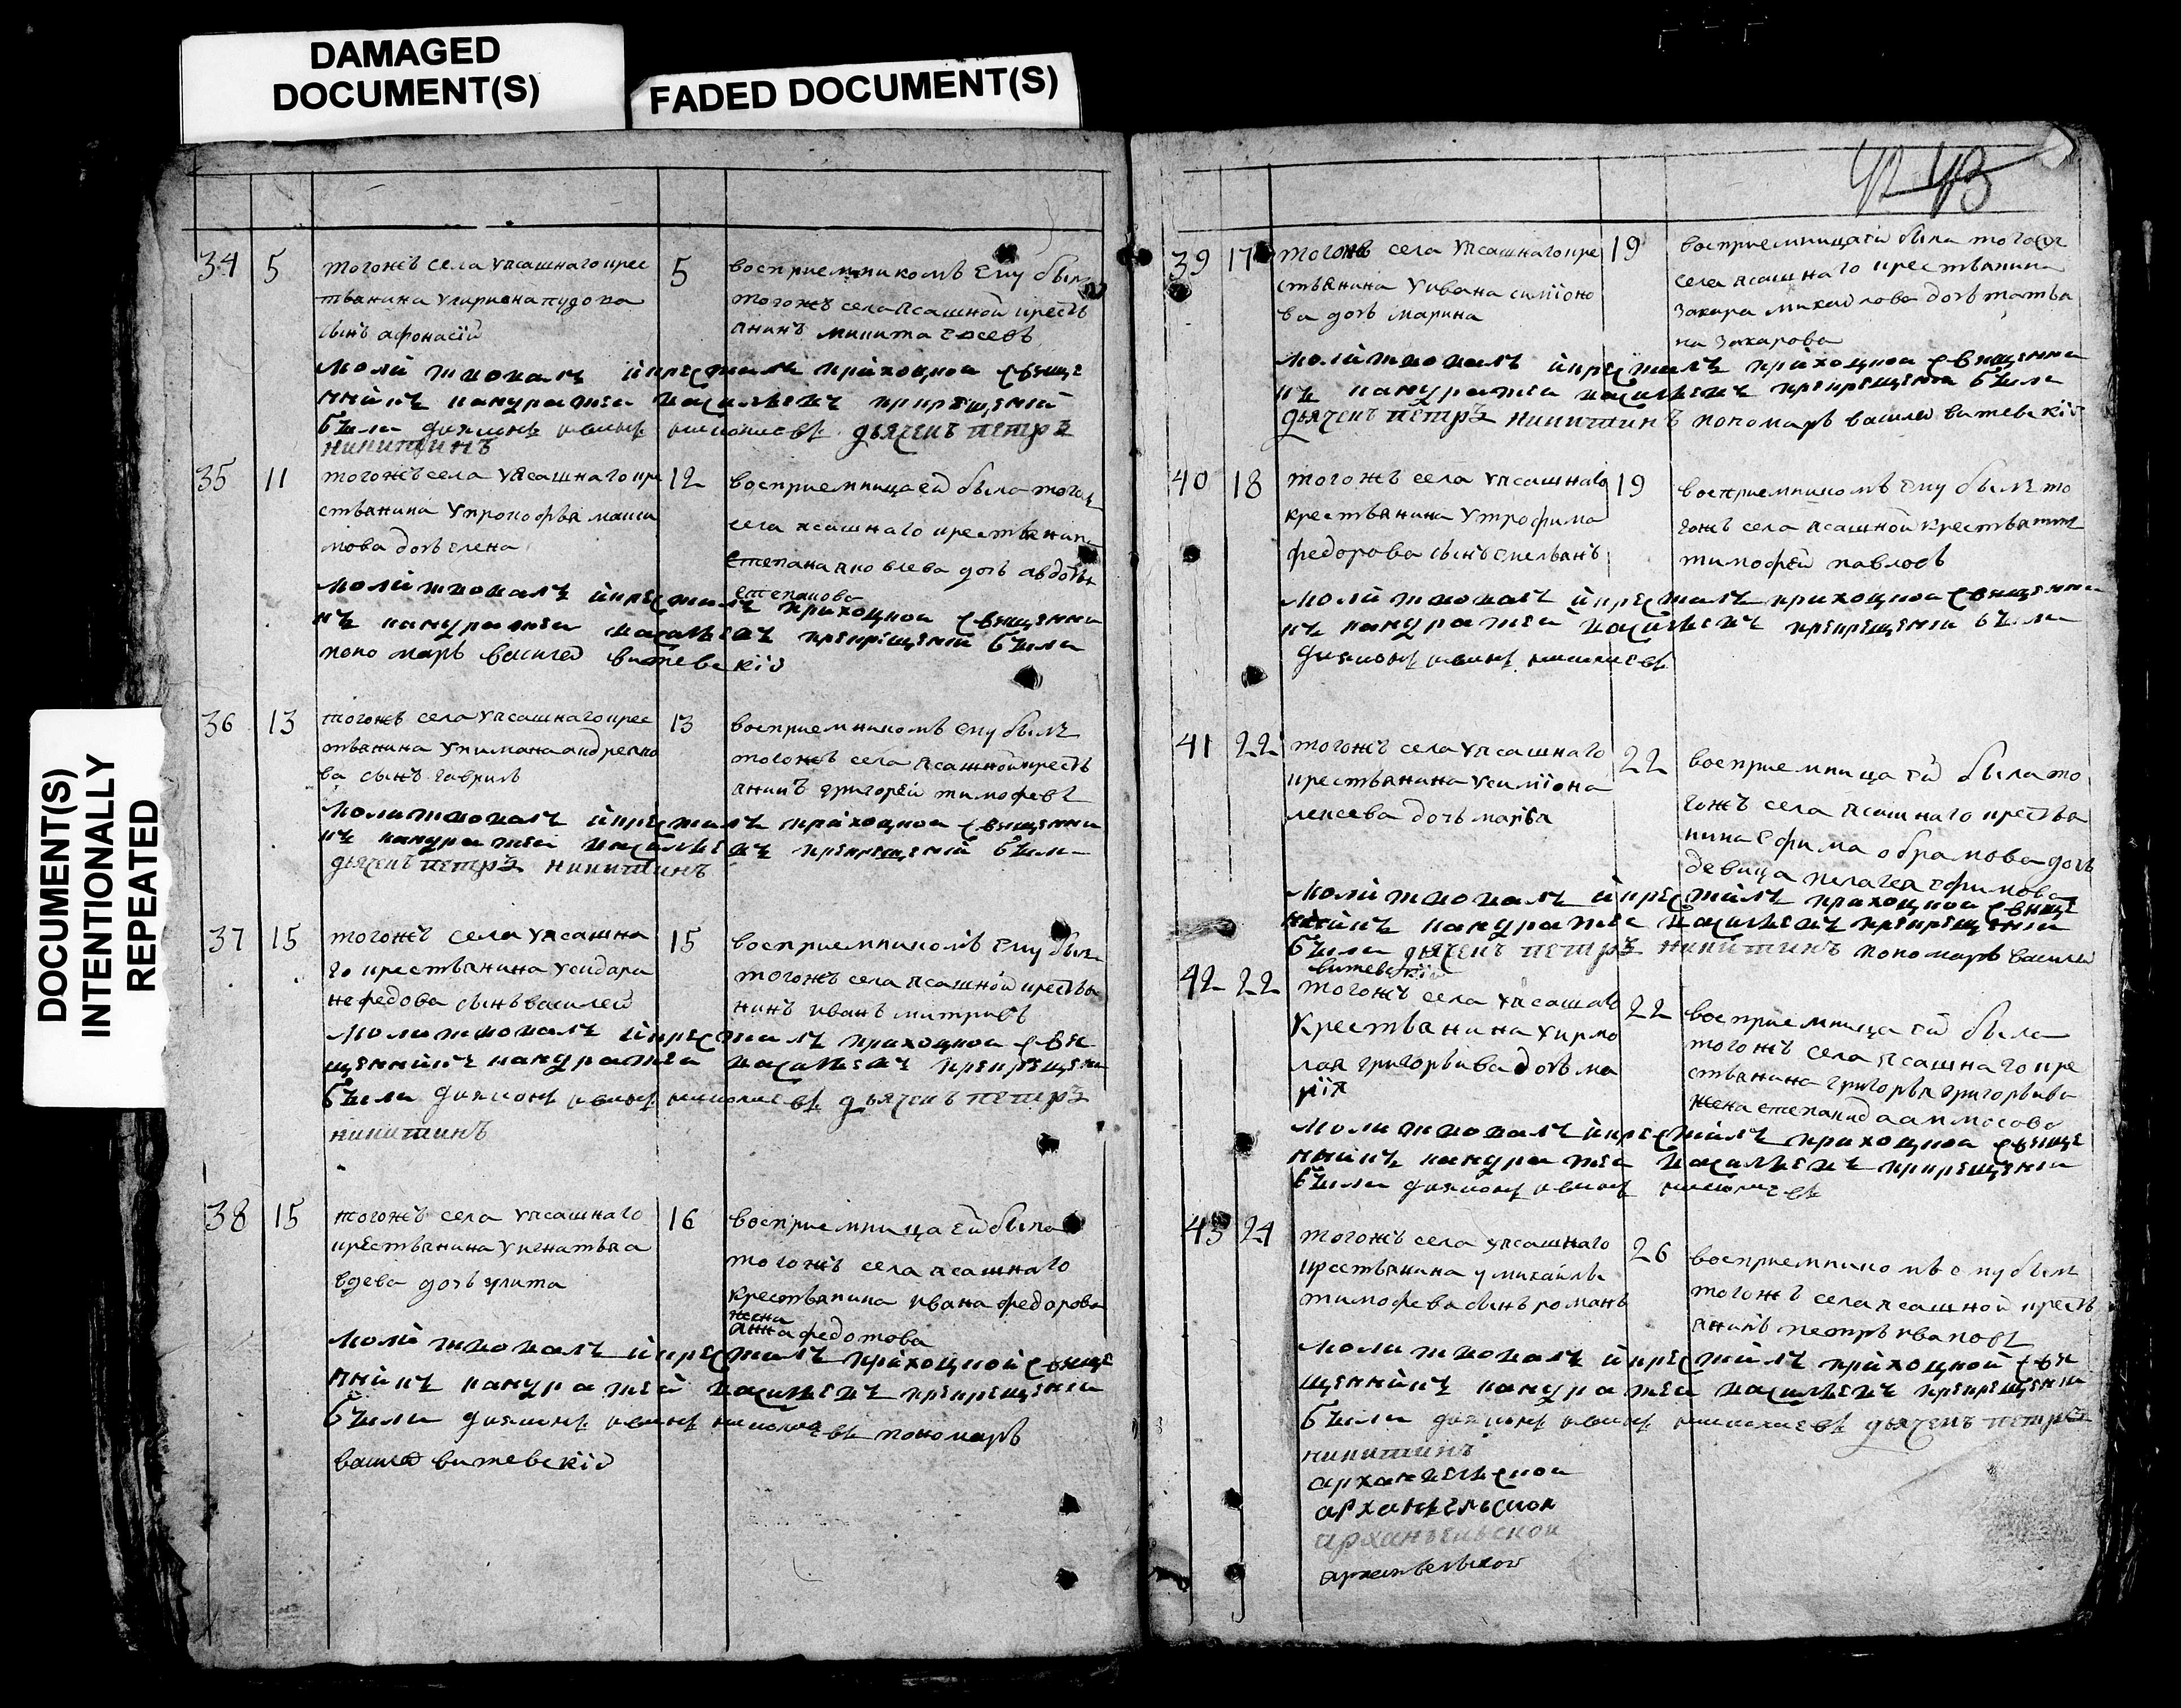 DAMAGED
DOCUMENT(S)
FADED DOCUMENT(S)
DOCUMENT(S)
INTENTIONALLY
REPEATED
34 5 тогожъ села уясашнаго крес
тьянина улариона пудова
сынъ афонасiй
5 восприемникомъ ему былъ
тогожъ села ясашной кресть
янинъ никита
молитвовалъ икрестилъ приходцкой свяще
нникъ кандратей васильевъ прикрещенiи
были дьячекъ петръ
никитинъ
35 11 тогожъ села уясашнаго кре
стьянина упрокофья макси
мова дочь елена
12 восприемница ей была тогож
села ясашнаго крестьянина
степана яковлева дочь авдотья
степанова
молитвовалъ икрестилъ приходцкой священни
къ кандратей васильевъ прикрещенiи были
пономарь василей витевскiй
36 13 тогожъ села уясашнаго крес
тьянина андреяно
ва сынъ гаврилъ
13 восприемникомъ ему былъ
тогожъ села ясашной кресть
янинъ григорей тимофевъ
молитвовалъ икрестилъ приходцкой священни
къ кандратей васильевъ прикрещенiи были
дьячекъ петръ никитинъ
37 15 тогожъ села уясашна
го крестьянина усидара
нефедова сынъ василей
15 восприемникомъ ему былъ
тогожъ села ясашной крестья
нинъ иванъ митривъ
молитвовалъ икрестилъ приходцкой свя
щенникъ кандратей васильевъ прикрещенiи
были дьячекъ петръ
никитинъ
38 15 тогожъ села уясашнаго
крестьянина уигнатья а
вдева дочь улита
16 восприемница ей была
тогожъ села ясашнаго
крестьянина ивана федорова
жена
анна федотова
молитвовалъ икрестилъ приходцкой свяще
нникъ кандратей васильевъ прикрещенiи
были пономарь
василей витевскiй
42 43
39 17 тогожъ села уясашнаго кре
стьянина уивана симiоно
ва дочь марина
19 восприемница ей была тогож
села ясашнаго крестьянина
захара михайлова дочь татья
на захарова
молитвовалъ икрестилъ приходцкой священни
къ кандратей васильевъ прикрещенiи были
дьячекъ петръ никитинъ пономарь василей витевскiй
40 18 тогожъ села уясашнаго
крестьянина утрофима
федорова сынъ емельянъ
19 восприемникомъ ему былъ то
гожъ села ясашной крестьянин
тимофей павловъ
молитвовалъ икрестилъ приходцкой священни
къ кандратей васильевъ прикрещенiи были
41 22 тогожъ села уясашнаго
крестьянина усимiона
лексева дочь марья
22 восприемница ей была то
гожъ села ясашнаго крестья
нина ефима обрамова дочь
девица пелагея ефимова
молитвовалъ икрестилъ приходцкой свяще
нникъ кандратей васильевъ прикрещенiи
были дьячекъ петръ никитинъ пономарь василей
витевскiй
42 22 тогожъ села уясашнаго
крестьянина уирмо
лая григорьива дочь ма
рiя
22 восприемница ей была
тогожъ села ясашнаго кре
стьянина григорья григорьива
жена степанида амосова
молитвовалъ икрестилъ приходцкой свяще
нникъ кандратей васильевъ прикрещенiи
были
43 24 тогожъ села уясашнаго
крестьянина умихайлы
тимофева сынъ романъ
26 восприемникомъ ему былъ
тогожъ села ясашной кресть
янинъ петръ ивановъ
молитвовалъ икрестилъ приходцкой свя
щенникъ кандратей васильевъ прикрещенiи
были дьячекъ петръ
никитинъ
архангельской
архангельской
архангельской